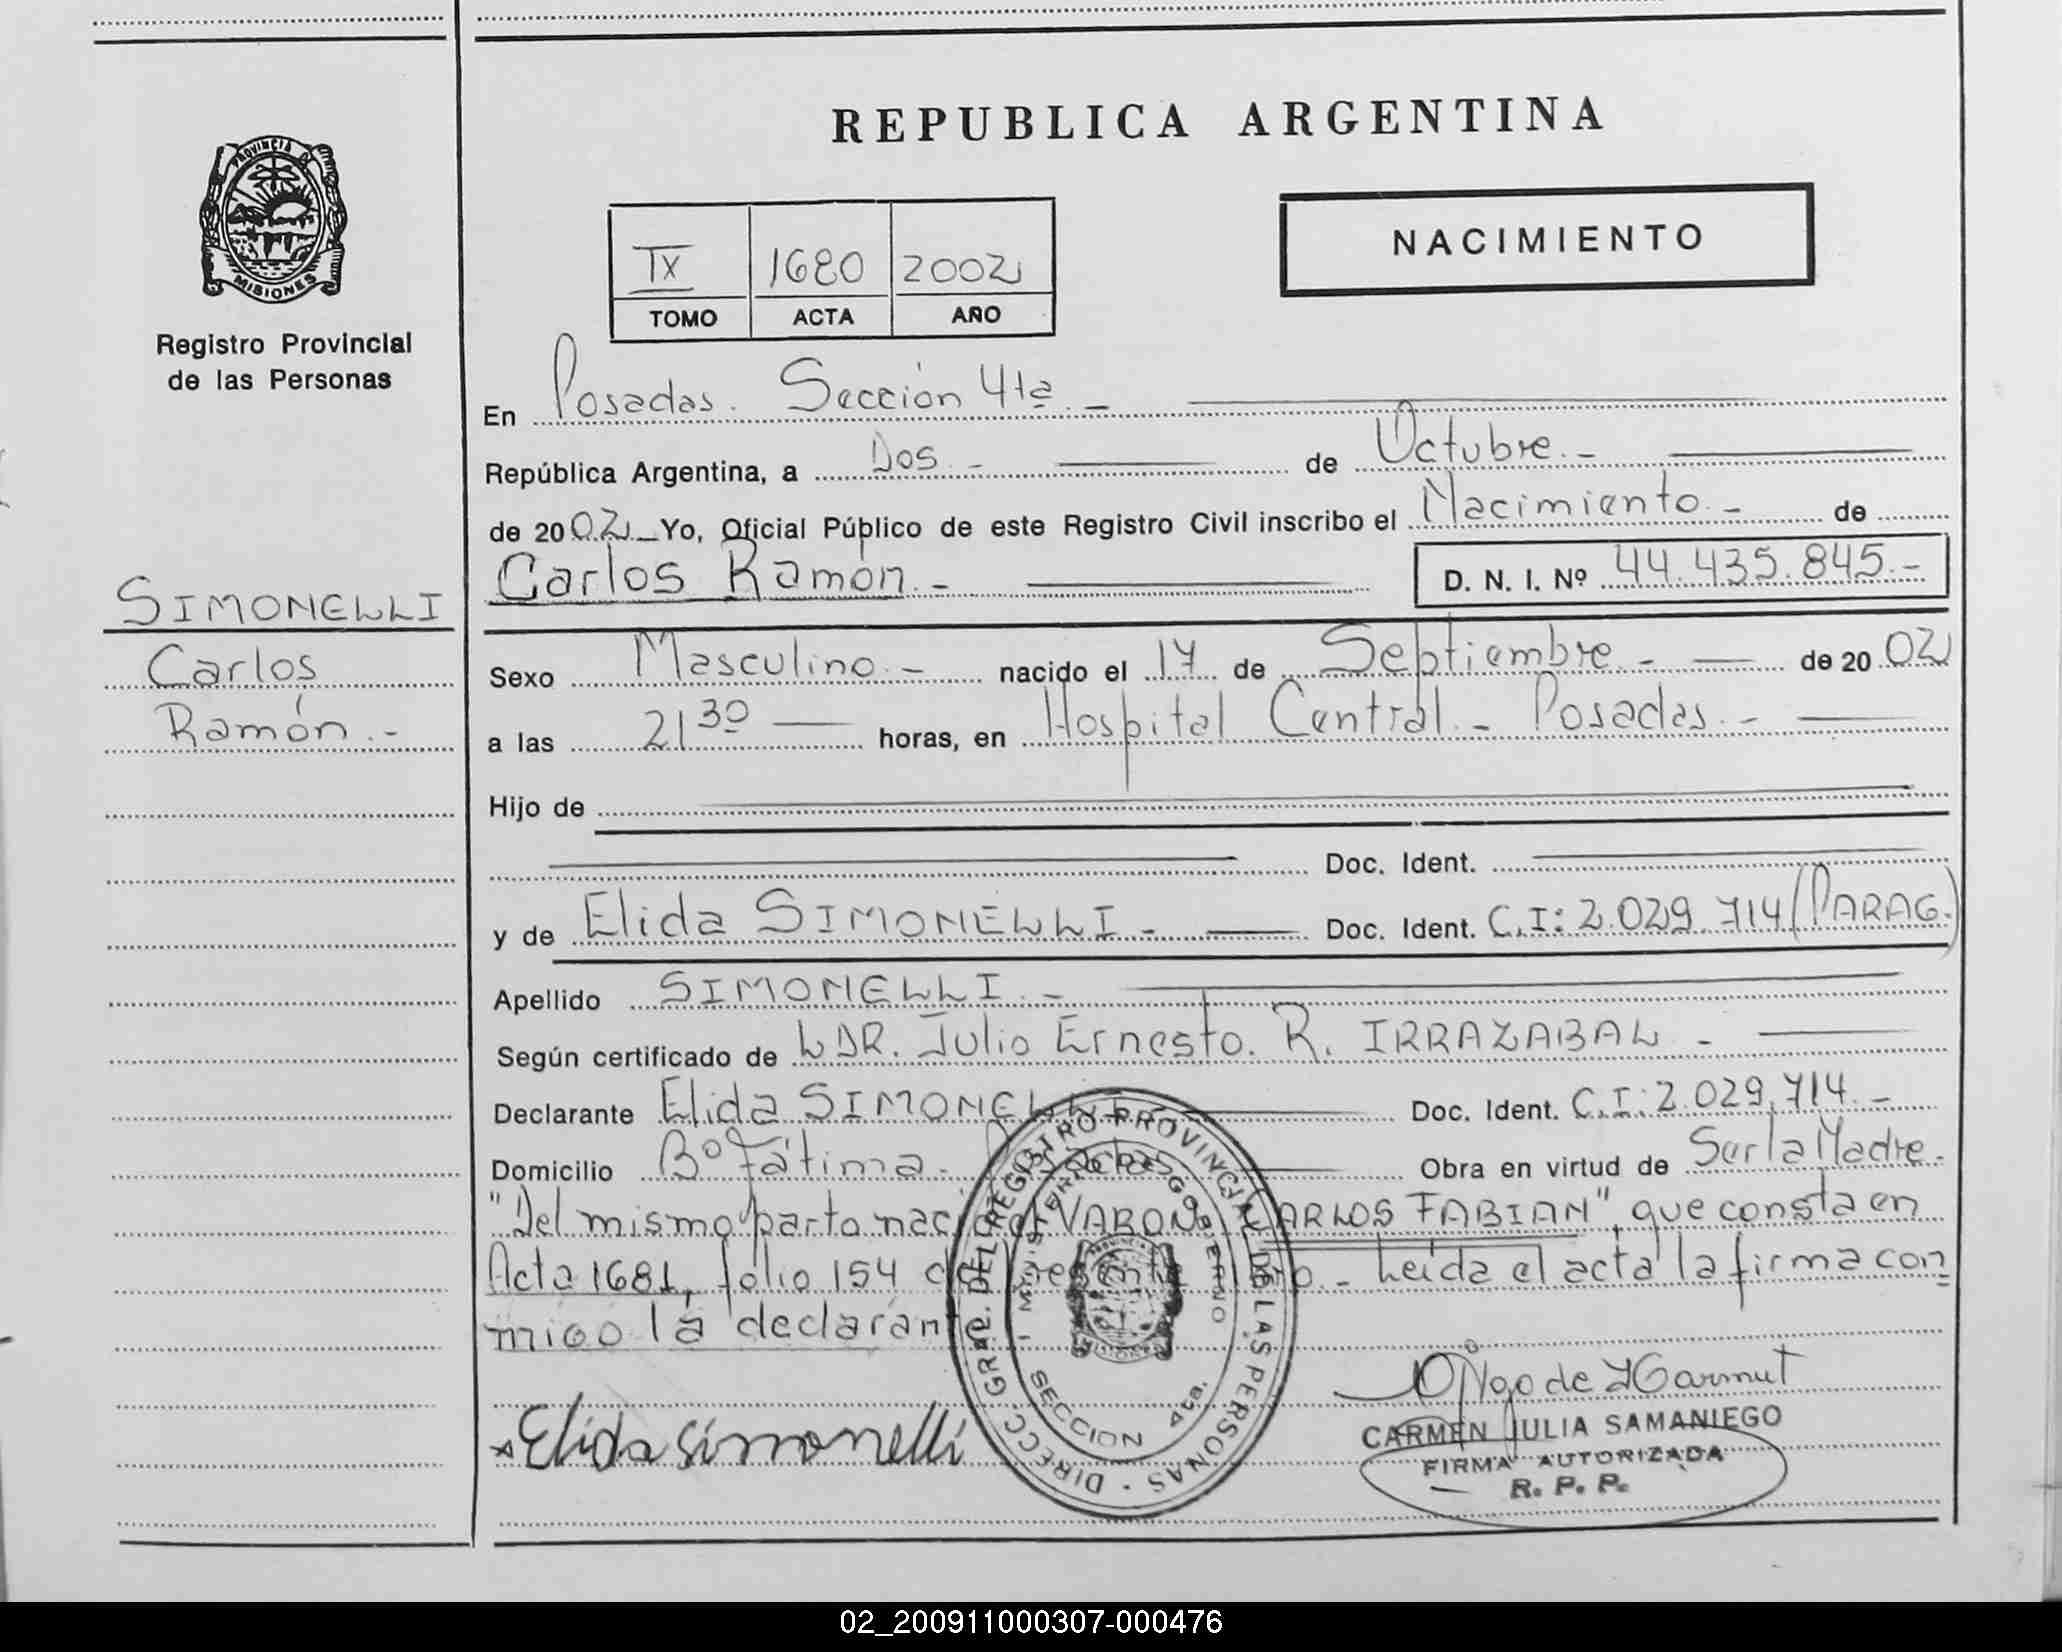 PROVINCIA DE
MISIONES
Registro Provincial
de las Personas
SIMONELLI
Carlos
Ramón.-
REPUBLICA ARGENTINA
IX 1680 2002
TOMO ACTA AÑO
NACIMIENTO
En Posadas. Sección 4ta.-
República Argentina, a Dos.- de Octubre.-
de 2002 Yo, Oficial Público de este Registro Civil inscribo el Nacimiento.- de
Carlos Ramón.- D. N. I. Nº 44.435.845.-
Sexo Masculino.- nacido el 17 de Septiembre.- de 2002
a las 21 30 horas, en Hospital Central.- Posadas.-
Hijo de
Doc. Ident.
y de Elida SIMONELLI.- Doc. Ident. C.I: 2.029.714 (PARAG.)
Apellido SIMONELLI.-
Según certificado de LDR. Julio Ernesto. R. IRRAZABAL.-
Declarante Elida SIMONELLI Doc. Ident. C.I: 2.029.714.-
Domicilio Bº Fátima.- Posadas Obra en virtud de Ser la Madre.-
"Del mismo parto nació VARON CARLOS FABIAN", que consta en
Acta 1681, folio 154 del presente Libro.- Leída el acta la firma con
migo la declarante
Elida simonelli
DIRECC. GRAL. DEL REGISTRO PROVINCIAL DE LAS PERSONAS
MINISTERIO DE GOBIERNO
PROVINCIA
MISIONES
SECCION 4ta.
CARMEN JULIA SAMANIEGO
FIRMA AUTORIZADA
R. P. P.
02_200911000307-000476